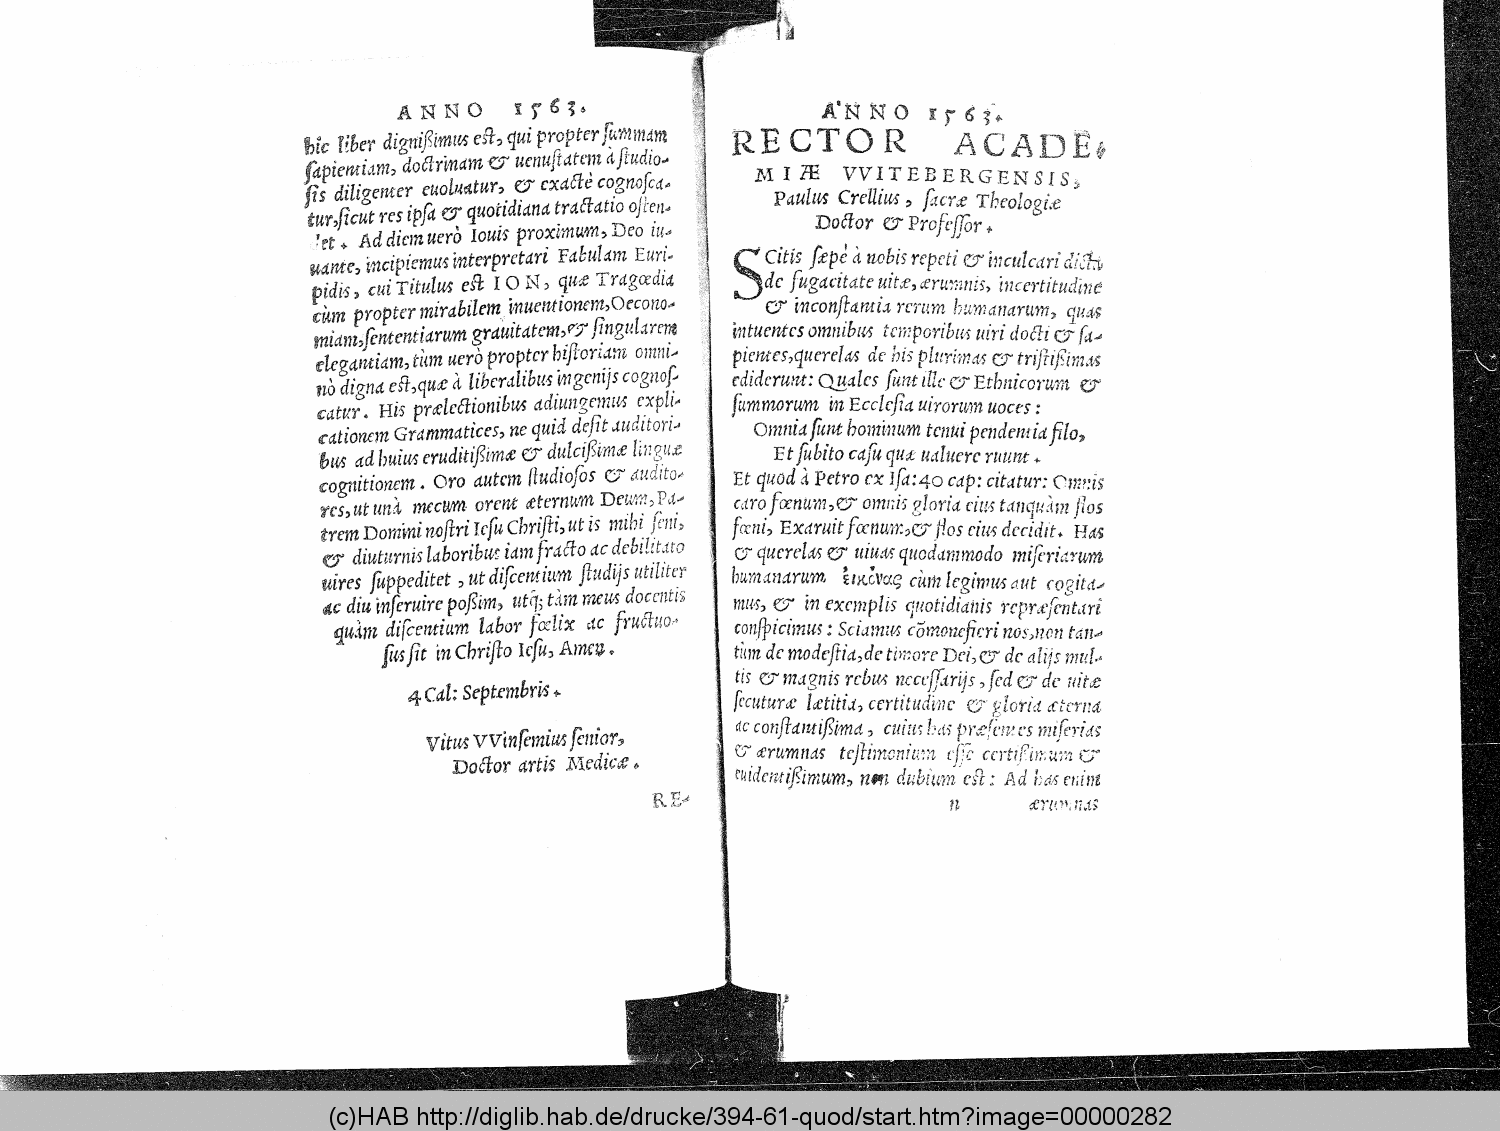 ANNO 1563.
hic liber dignißimus est, qui propter summam
sapientiam, doctrinam & uenustatem à studio-
sis diligenter euoluatur, & exactè cognosca-
tur, sicut res ipsa & quotidiana tractatio osten-
det. Ad diem uerò Iouis proximum, Deo iu-
uante, incipiemus interpretari Fabulam Euri-
pidis, cui Titulus est ION, quæ Tragœdia
cùm propter mirabilem inuentionem, Oecono-
miam, sententiarum grauitatem, & singularem
elegantiam, tùm uerò propter historiam omni-
nò digna est, quæ à liberalibus ingenijs cognos-
catur. His prælectionibus adiungemus expli-
cationem Grammatices, ne quid desit auditori-
bus ad huius eruditißimæ & dulcißimæ linguæ
cognitionem. Oro autem studiosos & audito-
res, ut unà mecum orent æternum Deum, Pa-
trem Domini nostri Iesu Christi, ut is mihi seni,
& diuturnis laboribus iam fracto ac debilitato
uires suppeditet, ut discentium studijs utiliter
ac diu inseruire poßim, utq; tàm meus docentis
quàm discentium labor fœlix ac fructuo-
sus sit in Christo Iesu, Amen.
4 Cal: Septembris.
Vitus VVinsemius senior,
Doctor artis Medicæ.
RE-
ANNO 1563.
RECTOR ACADE-
MIÆ VVITEBERGENSIS,
Paulus Crellius, sacræ Theologiæ
Doctor & Professor.
SCitis sæpè à nobis repeti & inculcari dicta
de fugacitate uitæ, ærumnis, incertitudine
& inconstantia rerum humanarum, quas
intuentes omnibus temporibus uiri docti & sa-
pientes, querelas de his plurimas & tristißimas
ediderunt: Quales sunt illæ & Ethnicorum &
summorum in Ecclesia uirorum uoces:
Omnia sunt hominum tenui pendentia filo,
Et subito casu quæ ualuere ruunt.
Et quod à Petro ex Isa: 40 cap: citatur: Omnis
caro fœnum, & omnis gloria eius tanquàm flos
fœni, Exaruit fœnum, & flos eius decidit. Has
& querelas & uiuas quodammodo miseriarum
humanarum εἰκόνας cùm legimus aut cogita-
mus, & in exemplis quotidianis repræsentari
conspicimus: Sciamus cõmonefieri nos, non tan-
tùm de modestia, de timore Dei, & de alijs mul-
tis & magnis rebus necessarijs, sed & de uitæ
secuturæ lætitia, certitudine & gloria æterna
ac constantißima, cuius has præsentes miserias
& ærumnas testimonium esse certißimum &
euidentißimum, non dubium est: Ad has enim
n ærumnas
(c)HAB http://diglib.hab.de/drucke/394-61-quod/start.htm?image=00000282